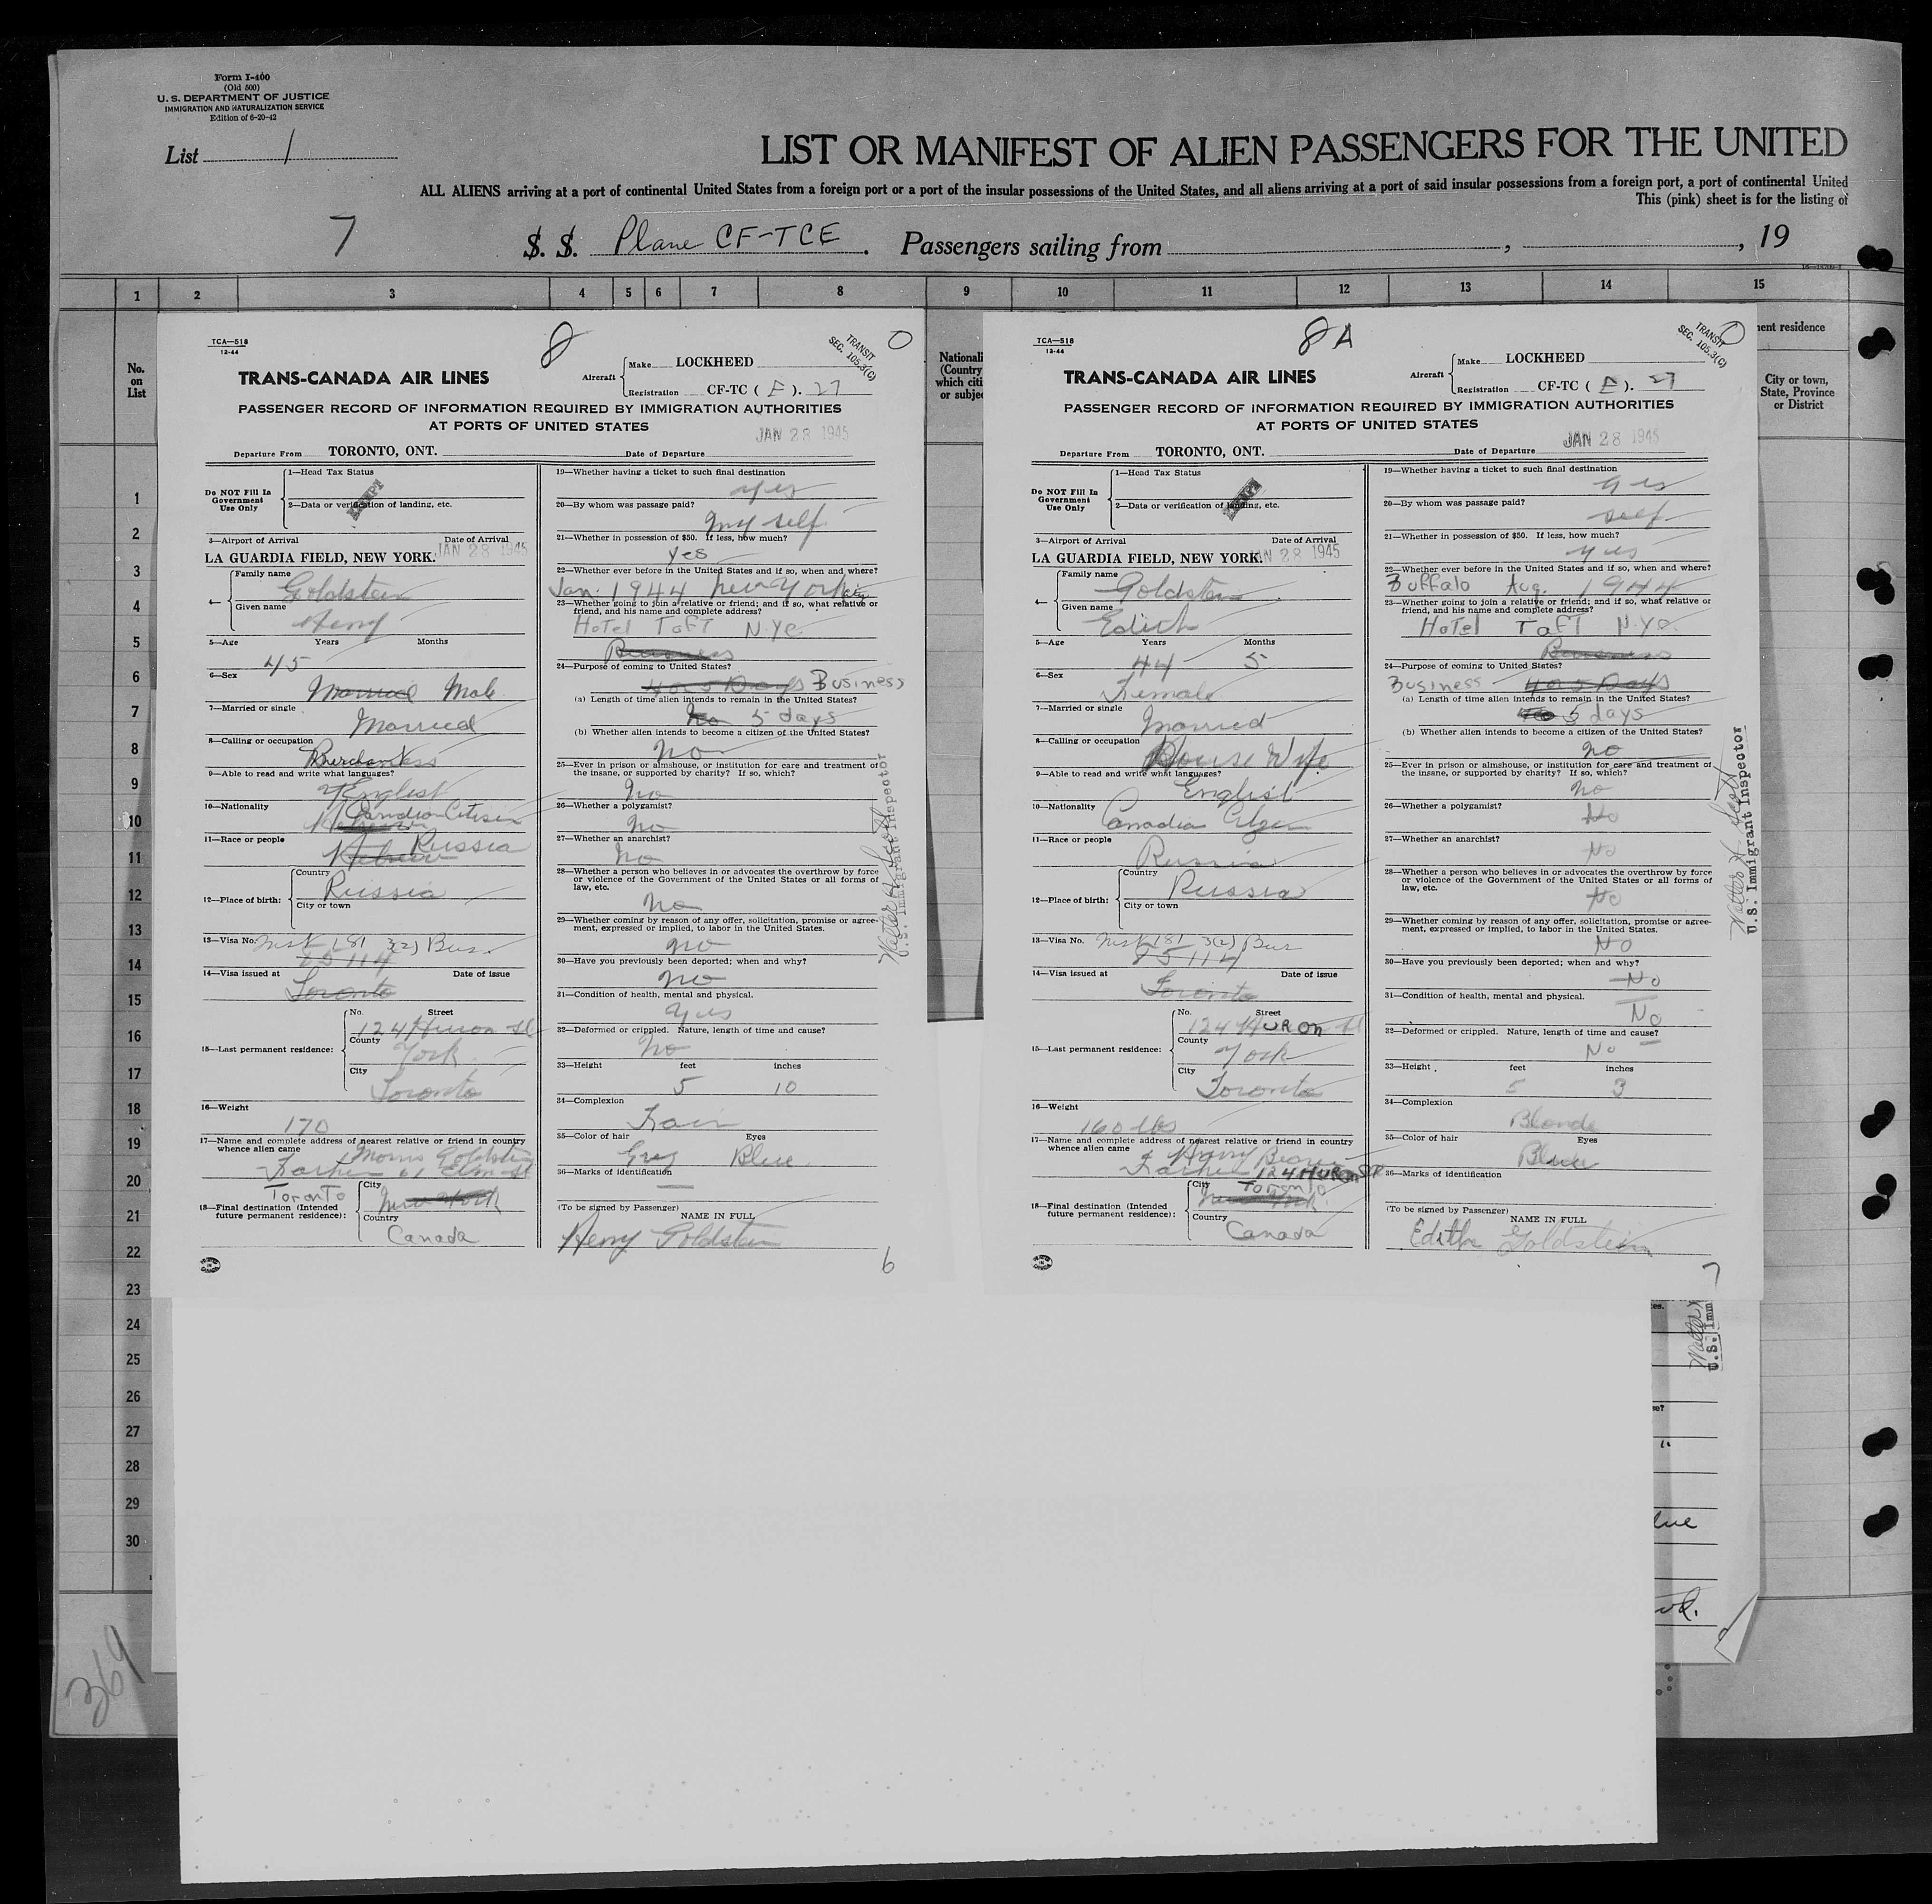 Form I-400
(Old 500)
U. S. DEPARTMENT OF JUSTICE
IMMIGRATION AND NATURALIZATION SERVICE
Edition of 6-20-42
List 1
LIST OR MANIFEST OF ALIEN PASSENGERS FOR THE UNITED
ALL ALIENS arriving at a port of continental United States from a foreign port or a port of the insular possessions of the United States, and all aliens arriving at a port of said insular possessions from a foreign port, a port of continental United
This (pink) sheet is for the listing of
7
S. S. Plane CF-TCE. Passengers sailing from , , 19
1 2 3 4 5 6 7 8 9 10 11 12 13 14 15
No. on List
Nationali
(Country
which citi
or subje
ent residence
City or town,
State, Province
or District
1
2
3
4
5
6
7
8
9
10
11
12
13
14
15
16
17
18
19
20
21
22
23
24
25
26
27
28
29
30
369
TCA—518
12-44
8
TRANSIT
SEC. 105.3(C)
TRANS-CANADA AIR LINES
Aircraft
Make LOCKHEED
Registration CF-TC ( E ). 27
PASSENGER RECORD OF INFORMATION REQUIRED BY IMMIGRATION AUTHORITIES
AT PORTS OF UNITED STATES
JAN 28 1945
Departure From TORONTO, ONT. Date of Departure
Do NOT Fill In
Government
Use Only
1—Head Tax Status
2—Data or verification of landing, etc.
3—Airport of Arrival Date of Arrival
LA GUARDIA FIELD, NEW YORK. JAN 28 1945
4—
Family name
Goldstein
Given name
Henry
5—Age Years Months
45
6—Sex
Married Male
7—Married or single
Married
8—Calling or occupation
9—Able to read and write what languages?
English
10—Nationality
Canadian Citizen
Hebrew
11—Race or people
Hebrew Russia
12—Place of birth:
Country
Russia
City or town
13—Visa No. 181 3(2) Bus.
25114
14—Visa issued at Date of issue
Toronto
15—Last permanent residence:
No. Street
124 Huron St
County
York
City
Toronto
16—Weight
170
17—Name and complete address of nearest relative or friend in country
whence alien came
Morris Goldstein
Father 61 Elm St
Toronto
18—Final destination (Intended
future permanent residence):
City
New York
Country
Canada
19—Whether having a ticket to such final destination
yes
20—By whom was passage paid?
My self
21—Whether in possession of $50. If less, how much?
yes
22—Whether ever before in the United States and if so, when and where?
Jan. 1944 New York City
23—Whether going to join a relative or friend; and if so, what relative or
friend, and his name and complete address?
Hotel Taft N.Y.C.
Business
24—Purpose of coming to United States?
4 or 5 Days Business
(a) Length of time alien intends to remain in the United States?
No 5 days
(b) Whether alien intends to become a citizen of the United States?
no
25—Ever in prison or almshouse, or institution for care and treatment of
the insane, or supported by charity? If so, which?
no
26—Whether a polygamist?
no
27—Whether an anarchist?
no
28—Whether a person who believes in or advocates the overthrow by force
or violence of the Government of the United States or all forms of
law, etc.
no
29—Whether coming by reason of any offer, solicitation, promise or agree-
ment, expressed or implied, to labor in the United States.
no
30—Have you previously been deported; when and why?
no
31—Condition of health, mental and physical.
yes
32—Deformed or crippled. Nature, length of time and cause?
no
33—Height feet inches
5 10
34—Complexion
Fair
35—Color of hair Eyes
Grey Blue
36—Marks of identification
—
(To be signed by Passenger)
NAME IN FULL
Henry Goldstein
6
U.S. Immigrant Inspector
TCA—518
12-44
8A
TRANSIT
SEC. 105.3(C)
TRANS-CANADA AIR LINES
Aircraft
Make LOCKHEED
Registration CF-TC ( E ). 27
PASSENGER RECORD OF INFORMATION REQUIRED BY IMMIGRATION AUTHORITIES
AT PORTS OF UNITED STATES
JAN 28 1945
Departure From TORONTO, ONT. Date of Departure
Do NOT Fill In
Government
Use Only
1—Head Tax Status
2—Data or verification of landing, etc.
3—Airport of Arrival Date of Arrival
LA GUARDIA FIELD, NEW YORK. JAN 28 1945
4—
Family name
Goldstein
Given name
Edith
5—Age Years Months
44 5
6—Sex
Female
7—Married or single
Married
8—Calling or occupation
House Wife
9—Able to read and write what languages?
English
10—Nationality
Canadian Citizen
11—Race or people
Russia
12—Place of birth:
Country
Russia
City or town
13—Visa No. 181 3(2) Bus
25114
14—Visa issued at Date of issue
Toronto
15—Last permanent residence:
No. Street
124 HURON St
County
York
City
Toronto
16—Weight
160 lbs
17—Name and complete address of nearest relative or friend in country
whence alien came
Harry
Father 124 HURON ST
18—Final destination (Intended
future permanent residence):
City
Toronto
New York
Country
Canada
19—Whether having a ticket to such final destination
yes
20—By whom was passage paid?
self
21—Whether in possession of $50. If less, how much?
yes
22—Whether ever before in the United States and if so, when and where?
Buffalo Aug. 1944
23—Whether going to join a relative or friend; and if so, what relative or
friend, and his name and complete address?
Hotel Taft N.Y.C.
Business
24—Purpose of coming to United States?
Business 4 or 5 Days
(a) Length of time alien intends to remain in the United States?
5 days
(b) Whether alien intends to become a citizen of the United States?
no
25—Ever in prison or almshouse, or institution for care and treatment of
the insane, or supported by charity? If so, which?
no
26—Whether a polygamist?
No
27—Whether an anarchist?
No
28—Whether a person who believes in or advocates the overthrow by force
or violence of the Government of the United States or all forms of
law, etc.
No
29—Whether coming by reason of any offer, solicitation, promise or agree-
ment, expressed or implied, to labor in the United States.
NO
30—Have you previously been deported; when and why?
No
31—Condition of health, mental and physical.
No
32—Deformed or crippled. Nature, length of time and cause?
No
33—Height feet inches
5 3
34—Complexion
Blonde
35—Color of hair Eyes
36—Marks of identification
(To be signed by Passenger)
NAME IN FULL
Edith Goldstein
7
U.S. Immigrant Inspector